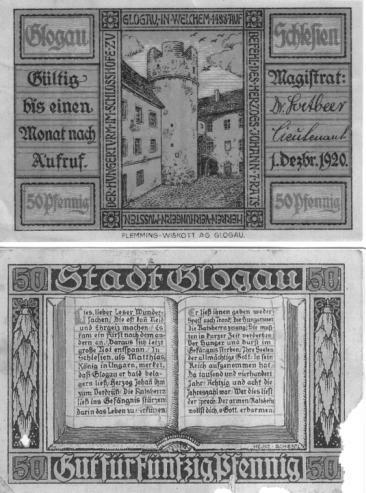 GLOGAU, IN WELCHEM 1488 AUF
Glogau
Schlesien
Gültig
bis einen
Monat nach
Aufruf.
50 Pfennig
DER HUNGERTURM IM SCHLOSSHOFE ZU
BEFEHL DES HERZOGS JOHANN
HERREN VERHUNGERN MUSSTEN
Magistrat:
Dr. Soetbeer
Lieutenant
1. Dezbr. 1920.
50 Pfennig
FLEMMING-WISKOTT AG. GLOGAU.
50 Stadt Glogau 50
Lies, lieber Leser Wunder-
sachen, Die oft den Neid
und Ehrgeiz machen: Es
kam ein Fürst nach dem an-
dern an, Daraus sich letzt
große Not entspann. In
Schlesien, als Matthias,
König in Ungarn, merket,
daß Glogau er bald bela-
gern ließ, Herzog Johan ihm
zum Verdrieß Die Ratsherrn
ließ ins Gefängnis stürzen
darin das Leben zu verkürzen
Er ließ ihnen geben weder
Speis noch Trank, Die Hungersnot
die Ratsherrn zwang: Die muß-
ten in kurzer Zeit verderben
Vor Hunger und Durst im
Gefängnis sterben, Ihre Seelen
der allmächtige Gott In sein
Reich aufgenommen hat.
Da tausend und vierhundert
Jahr Achtzig und acht die
Jahreszahl war: Wer dies liest
der sprech: Der armen Ratsherrn
wollst dich, o Gott, erbarmen.
HEINZ SCHENK
50 Gut für fünfzig Pfennig 50